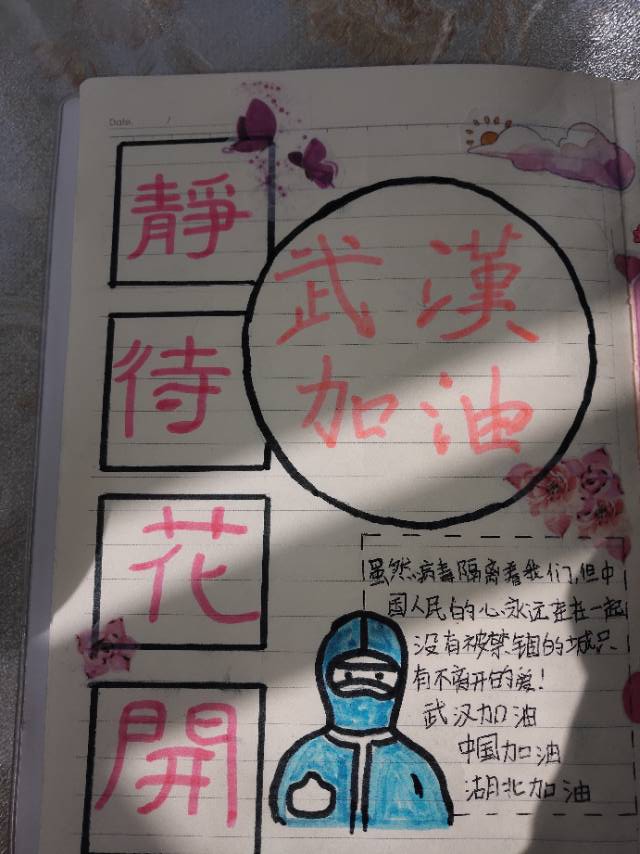 Date. /
靜
待
花
開
武漢
加油
虽然,病毒隔离着我们,但中
国人民的心永远连在一起
没有被禁锢的城只
有不离开的爱!
武汉加油
中国加油
湖北加油